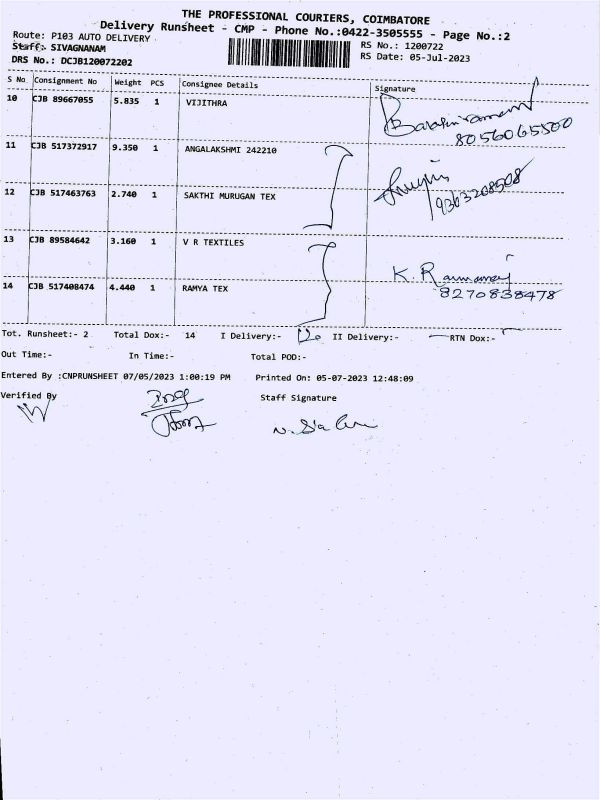 THE PROFESSIONAL COURIERS, COIMBATORE
Delivery Runsheet - CMP - Phone No.:0422-3505555 - Page No.:2
Route: P103 AUTO DELIVERY
RS No.: 1200722
Staff: SIVAGNANAM
RS Date: 05-Jul-2023
DRS No.: DCJB120072202
S No Consignment No Weight PCS Consignee Details Signature
10 CJB 89667055 5.835 1 VIJITHRA
8056065500
11 CJB 517372917 9.350 1 ANGALAKSHMI 242210
9363208508
12 CJB 517463763 2.740 1 SAKTHI MURUGAN TEX
13 CJB 89584642 3.160 1 V R TEXTILES
K.
14 CJB 517408474 4.440 1 RAMYA TEX
8270838478
Tot. Runsheet:- 2 Total Dox:- 14 I Delivery:- II Delivery:- RTN Dox:-
Out Time:- In Time:- Total POD:-
Entered By :CNPRUNSHEET 07/05/2023 1:00:19 PM Printed On: 05-07-2023 12:48:09
Verified By Staff Signature